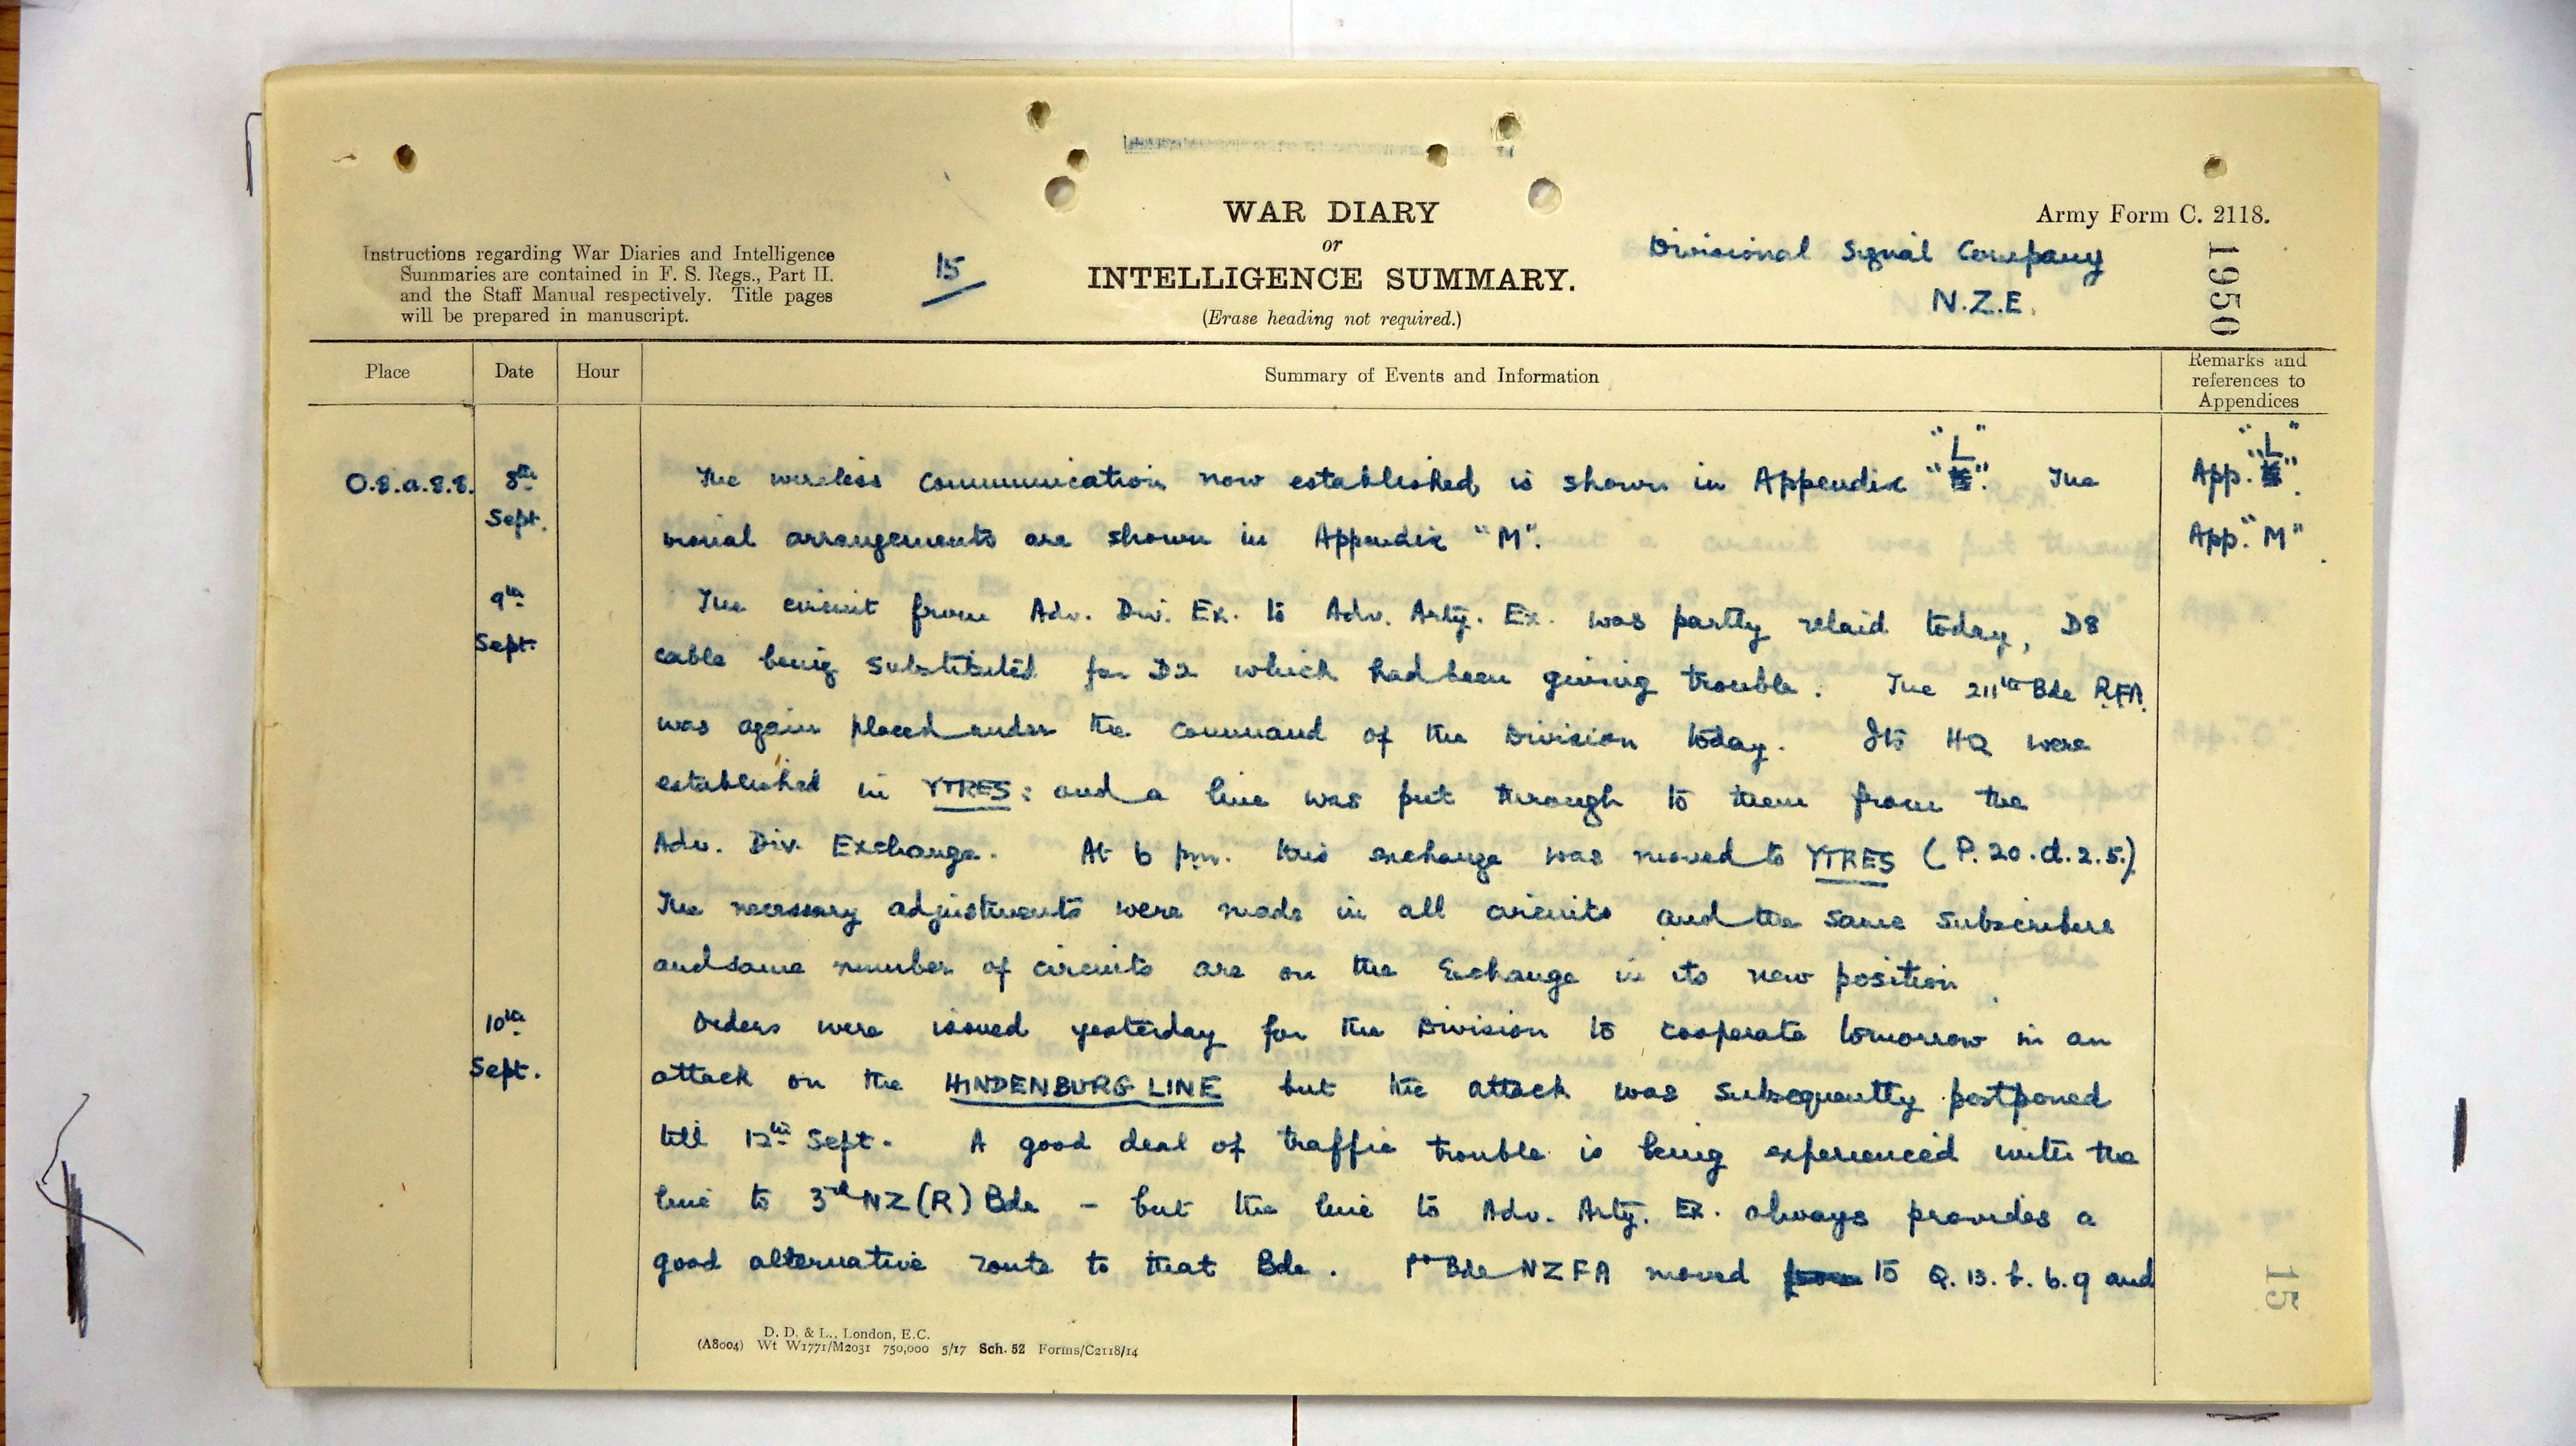 WAR DIARY
or
INTELLIGENCE SUMMARY.
(Erase heading not required.)
Army Form C. 2118.
Instructions regarding War Diaries and Intelligence
Summaries are contained in F. S. Regs., Part II.
and the Staff Manual respectively. Title pages
will be prepared in manuscript.
15
Divisional Signal Company
N.Z.E.
1950
Place Date Hour Summary of Events and Information Remarks and references to Appendices
"L" "L"
O.8.a.8.8. 8th Sept. The wireless communication now established is shown in Appendix " ". The App. " ".
visual arrangements are shown in Appendix "M". App. "M"
9th Sept. The circuit from Adv. Div. Ex. to Adv. Arty. Ex. was partly relaid today, D8
cable being substituted for D2 which had been giving trouble. The 211th Bde R.F.A.
was again placed under the command of the Division today. Its HQ were
established in YTRES: and a line was put through to them from the
Adv. Div. Exchange. At 6 pm. this exchange was moved to YTRES (P.20.d.2.5.)
The necessary adjustments were made in all circuits and the same subscribers
and same number of circuits are on the Exchange in its new position.
10th Sept. Orders were issued yesterday for the Division to cooperate tomorrow in an
attack on the HINDENBURG LINE but the attack was subsequently postponed
till 12th Sept. A good deal of traffic trouble is being experienced with the
line to 3rd NZ(R) Bde - but the line to Adv. Arty. Ex. always provides a
good alternative route to that Bde. 1st Bde NZFA moved from to Q.13.b.6.9 and
D. D. & L., London, E.C.
(A8004) Wt W1771/M2031 750,000 5/17 Sch. 52 Forms/C2118/14
15